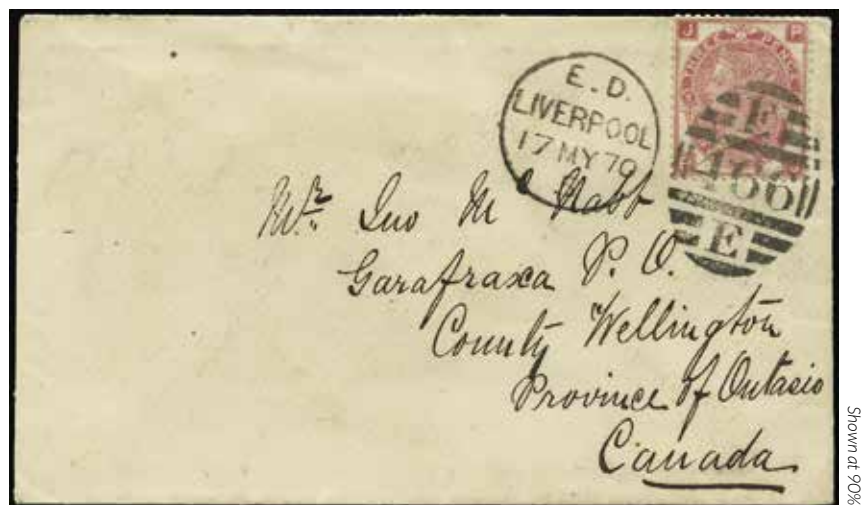 J P
THREE PENCE
E.D.
LIVERPOOL
17 MY 70
E
466
E
Mr. Jno McNabb
Garafraxa P. O.
County Wellington
Province of Ontario
Canada
Shown at 90%